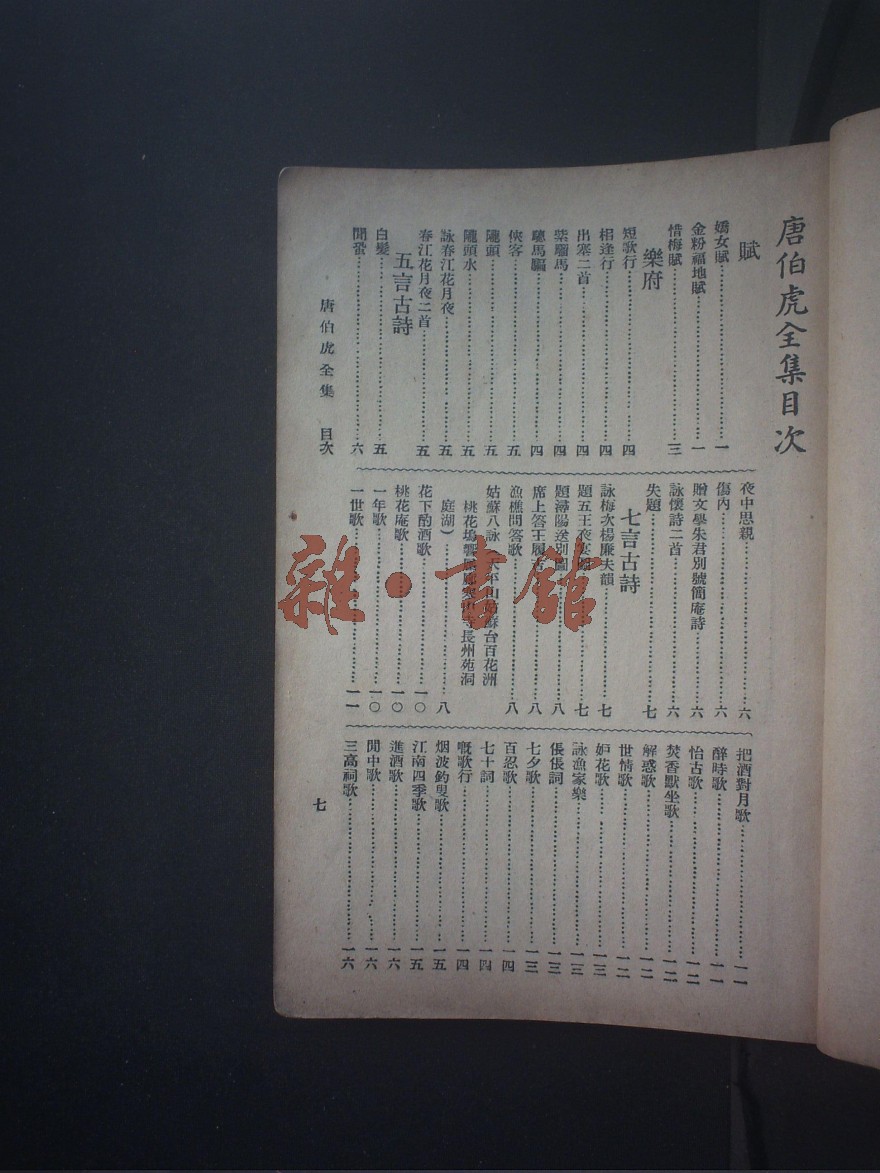 唐伯虎全集目次
賦
嬌女賦……一
金粉福地賦……一
惜梅賦……三
樂府
短歌行……四
相逢行……四
出塞二首……四
紫騮馬……四
驄馬驅……四
俠客……五
隴頭……五
隴頭水……五
詠春江花月夜……五
春江花月夜二首……五
五言古詩
白髮……五
聞蛩……六
夜中思親……六
傷內……六
贈文學朱君別號簡庵詩……六
詠懷詩二首……六
失題……七
七言古詩
詠梅次楊廉夫韻……七
題五王夜宴圖……七
題潯陽送別圖……八
席上答王履吉……八
漁樵問答歌……八
姑蘇八詠（天平山姑蘇台百花洲
桃花塢響屧廊寒山寺長州苑洞
庭湖）……八
花下酌酒歌……一〇
桃花庵歌……一〇
一年歌……一〇
一世歌……一一
把酒對月歌……一一
醉時歌……一一
怡古歌……一二
焚香默坐歌……一二
解惑歌……一二
世情歌……一二
妒花歌……一三
詠漁家樂……一三
倀倀詞……一三
七夕歌……一三
百忍歌……一四
七十詞……一四
嘅歌行……一四
烟波釣叟歌……一五
江南四季歌……一五
進酒歌……一六
閒中歌……一六
三高祠歌……一六
唐伯虎全集 目次
七
雜·書館